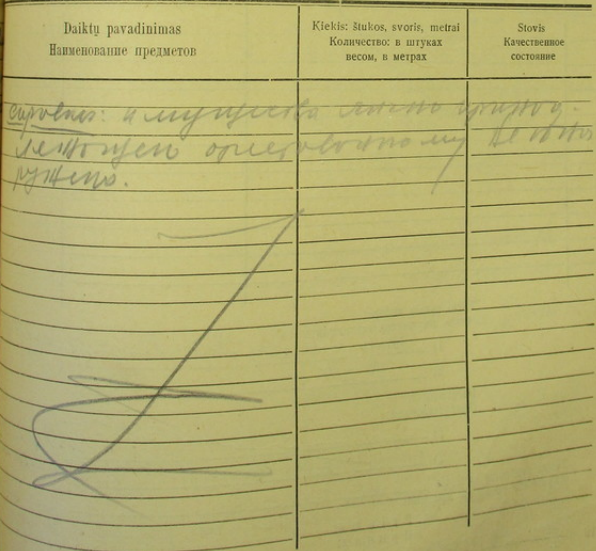 Daiktų pavadinimas
Наименование предметов
Kiekis: štukos, svoris, metrai
Количество: в штуках
весом, в метрах
Stovis
Качественное
состояние
имущества лично принад-
лежащего арестованному не обна
ружено.